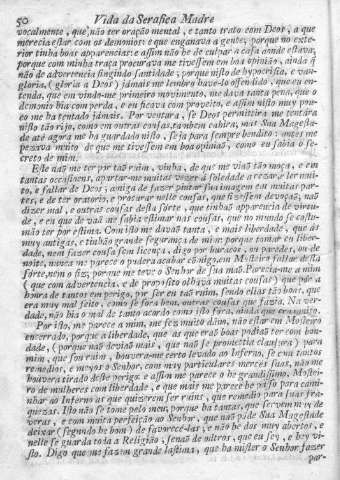 50 Vida da Serafica Madre
vocalmente, que, não ter oração mental, e tanto trato com Deos, a que
merecia estar com os demonios: e que enganava a gente, porque no exte-
rior tinha boas apparencias: e assim não he de culpar a casa onde estava,
porque com minha traça procurava me tivessem em boa opinião, ainda q̃
não de advertencia fingindo santidade; porque nisto de hypocrisia, e van-
gloria, (gloria a Deos) jámais me lembro have-lo offendido, que eu en-
tenda, que em vindo-me primeiro movimento, me dava tanta pena, que o
demonio hia com perda, e eu ficava com proveito, e assim nisto muy pou-
co me ha tentado jámais. Por ventura, se Deos permittira me tentára
nisto tão rijo, como em outras cousas, tambem cahira, mas Sua Magesta-
de até agora me ha guardado nisto, seja para sempre bendito: antes me
pezava muito de que me tivessem em boa opinião, como eu sabia o se-
creto de mim.
Este não me ter por taõ ruim, vinha, de que me viaõ tão moça, e em
tantas occasioens, apartar-me muitas vezes á soledade a rezar, e ler mui-
to, e fallar de Deos; amiga de fazer pintar sua imagem em muitas par-
tes, e de ter oratorio, e procurar nelle cousas, que fizessem devoçaõ, naõ
dizer mal, e outras cousas desta sórte, que tinhão apparencia de virtu-
de, e eu que de vaã me sabia estimar nas cousas, que no mundo se costu-
mão ter por estima. Com isto me davaõ tanta, e mais liberdade, que ás
muy antigas, e tinhão grande segurança de mim: porque tomar eu liber-
dade, nem fazer cousa sem licença, digo por buracos, ou paredes, ou de
noite, nunca me parece o pudera acabar cõmigo, em Mosteiro fallar desta
sórte, nem o fiz, porque me teve o Senhor de sua mão. Parecia-me a mim
(que com advertencia, e de proposito olhava muitas cousas) que pôr a
honra de tantas em perigo, por ser eu taõ ruim, sendo ellas taõ boas, que
era muy mal feito, como se fora bem, outras cousas que fazia. Na ver-
dade, não hia o mal de tanto acordo como isto fora, ainda que era muito.
Por isto, me parece a mim, me fez muito dãno, não estar em Mosteiro
encerrado, porque a liberdade, que as que eraõ boas podiaõ ter com bon-
dade, (porque naõ deviaõ mais, que naõ se promettia clausura) para
mim, que sou ruim, houvera-me certo levado ao Inferno, se com tantos
remedios, e meyos o Senhor, com muy particulares mercês suas, não me
houvera tirado deste perigo: e assim me parece o he grandissimo, Mostei-
ro de mulheres com liberdade, e que mais me parece he passo para cami-
nhar ao Inferno as que quizerem ser ruins, que remedio para suas fra-
quezas. Isto naõ se tome pelo meu, porque ha tantas, que servem muy de
veras, e com muita perfeição ao Senhor, que naõ póde Sua Magestade
deixar (segundo he bom) de favorecê-las, e não he dos muy abertos, e
nelle se guarda toda a Religião, senaõ de outros, que eu sey, e hey vi-
sto. Digo que me fazem grande lastima, que ha mister o Senhor fazer
par-